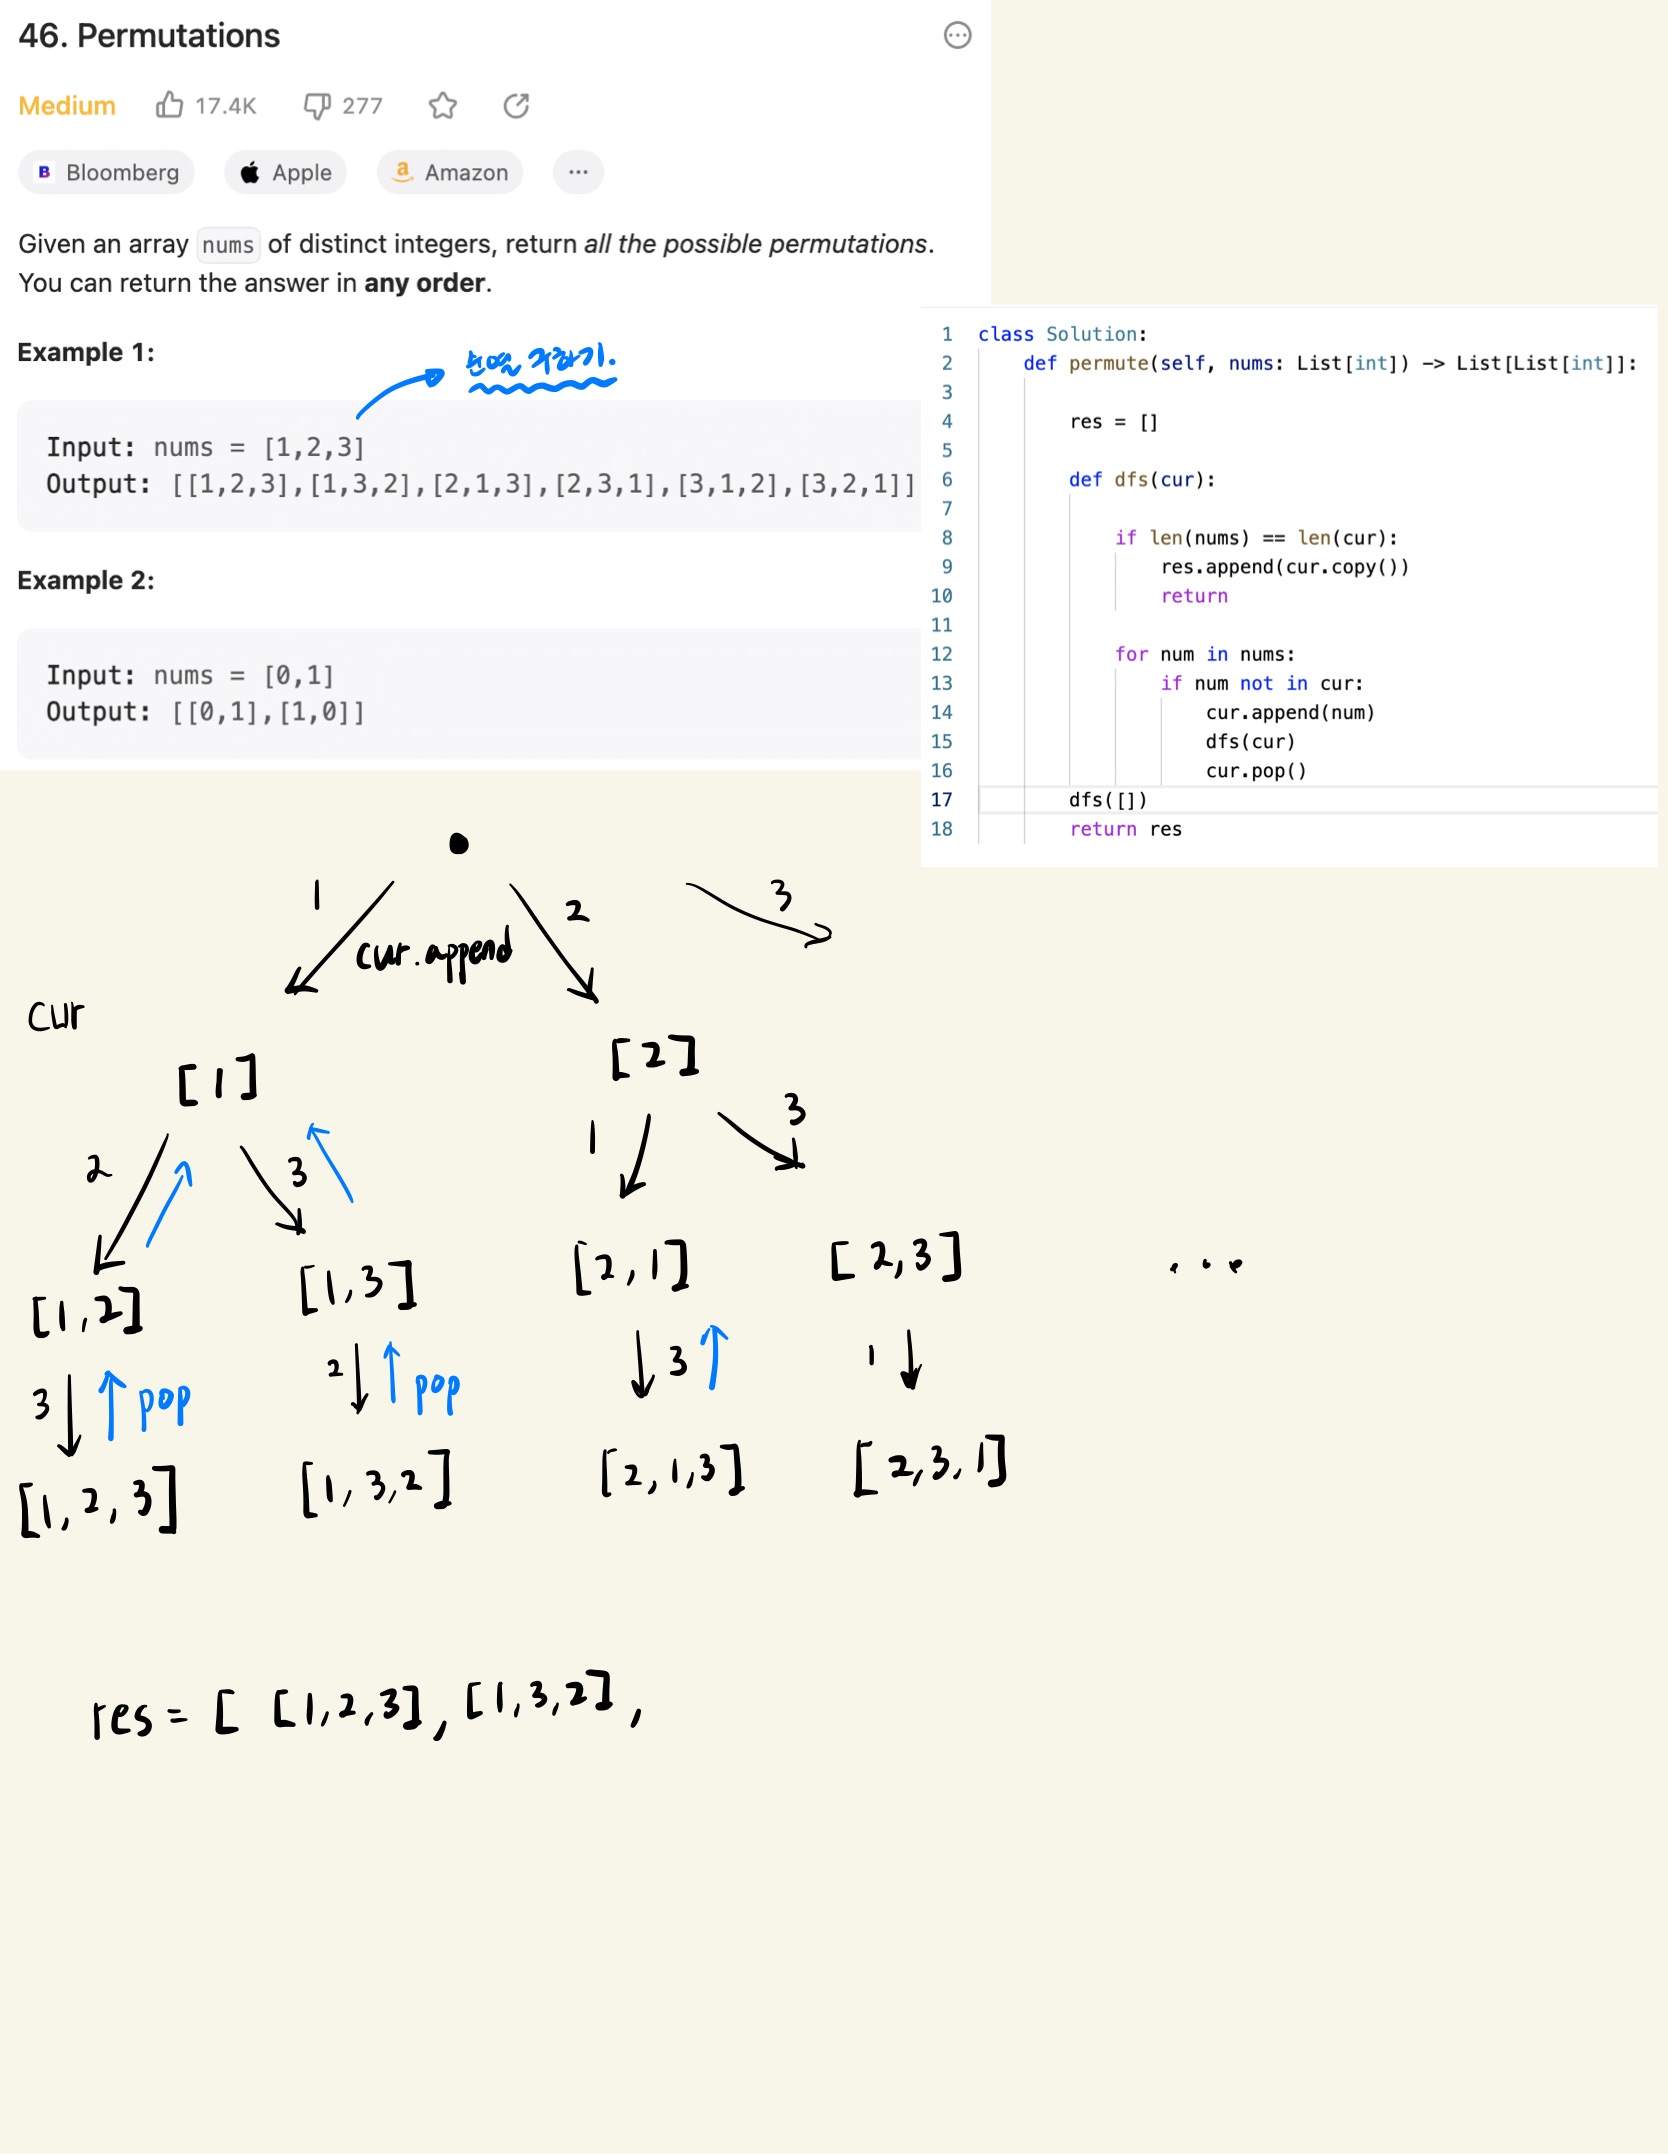 46. Permutations
Medium 17.4K 277
Bloomberg Apple Amazon ...
Given an array nums of distinct integers, return all the possible permutations.
You can return the answer in any order.
Example 1:
순열 구하기.
Input: nums = [1,2,3]
Output: [[1,2,3],[1,3,2],[2,1,3],[2,3,1],[3,1,2],[3,2,1]]
Example 2:
Input: nums = [0,1]
Output: [[0,1],[1,0]]
1 class Solution:
2 def permute(self, nums: List[int]) -> List[List[int]]:
3
4 res = []
5
6 def dfs(cur):
7
8 if len(nums) == len(cur):
9 res.append(cur.copy())
10 return
11
12 for num in nums:
13 if num not in cur:
14 cur.append(num)
15 dfs(cur)
16 cur.pop()
17 dfs([])
18 return res
1 2 3
cur.append
cur
[1] [2]
2 3 1 3
[1,2] [1,3] [2,1] [2,3] ...
3 pop 2 pop 3 1
[1,2,3] [1,3,2] [2,1,3] [2,3,1]
res = [ [1,2,3], [1,3,2],